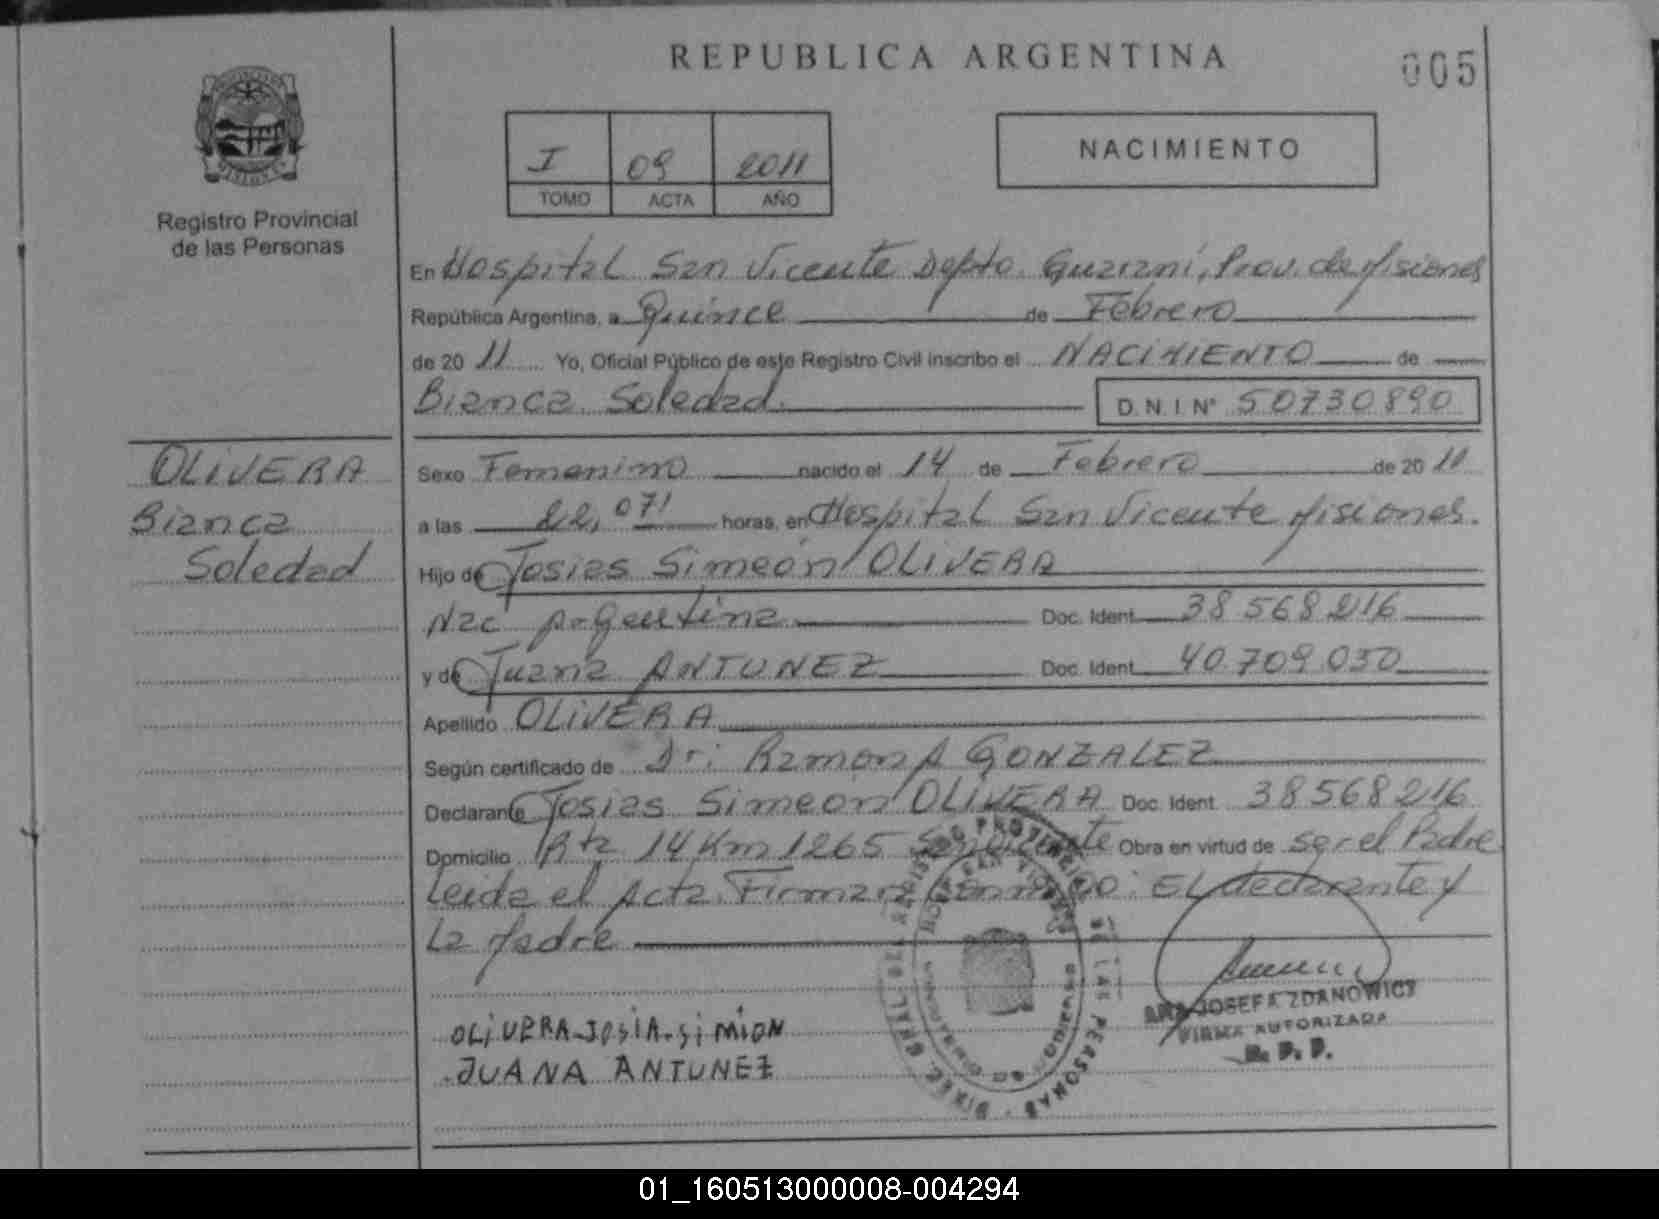 REPUBLICA ARGENTINA
005
I 09 2011
TOMO ACTA AÑO
NACIMIENTO
Registro Provincial
de las Personas
En Hospital San Vicente Depto. Guarani, Prov. de Misiones
República Argentina, a Quince de Febrero
de 20 11 Yo, Oficial Público de este Registro Civil inscribo el NACIMIENTO de
Bianca Soledad. D.N.I Nº 50730890
OLIVERA
Bianca
Soledad
Sexo Femenino nacido el 14 de Febrero de 20 11
a las 22,07' horas, en Hospital San Vicente Misiones.
Hijo de Josias Simeón OLIVERA
Nac Argentina Doc. Ident. 38 568 216
y de Juana ANTUNEZ Doc. Ident. 40.709.030
Apellido OLIVERA
Según certificado de Dr: Ramon A GONZALEZ
Declarante Josias Simeon OLIVERA Doc. Ident. 38568216
Domicilio Rta 14 Km 1265 San Vicente Obra en virtud de ser el Padre
Leida el Acta. Firman conmigo: EL declarante y
La Madre
OLIVERA JOSIA SiMiON
JUANA ANTUNEZ
ANA JOSEFA ZDANOWICZ
FIRMA AUTORIZADA
R. P. P.
DIREC. GRAL. DEL REGISTRO PROVINCIAL DE LAS PERSONAS
01_160513000008-004294